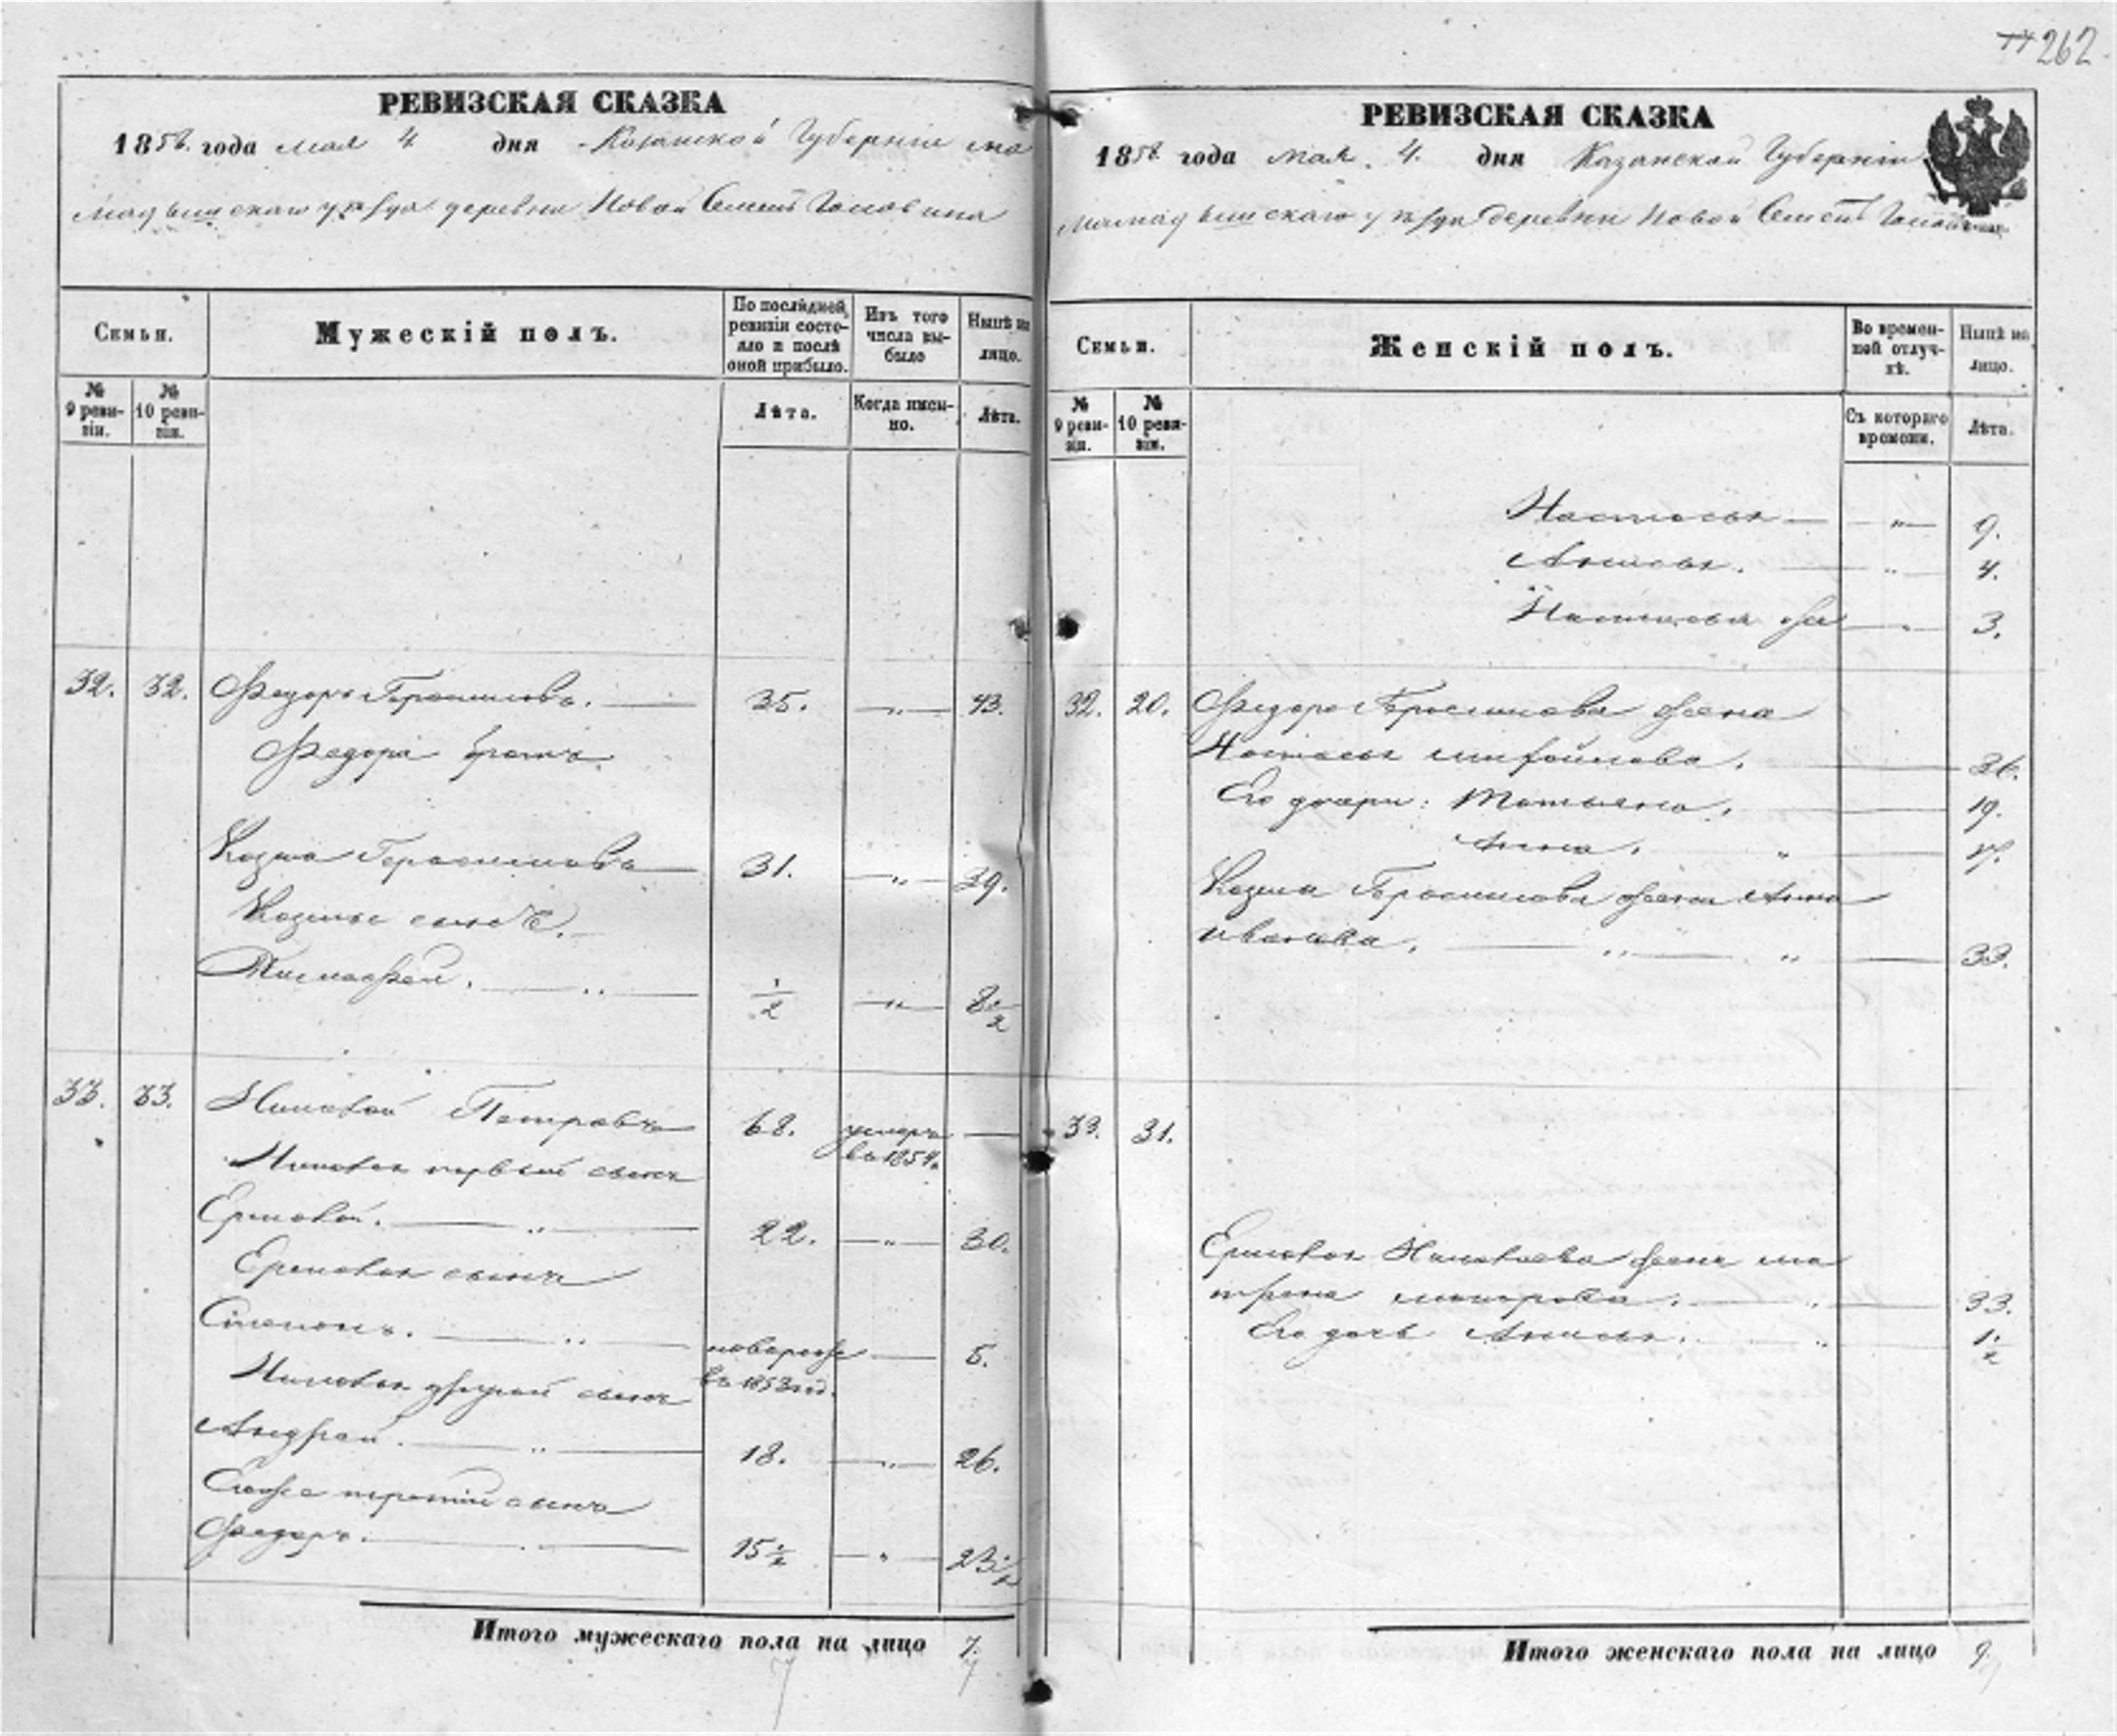 262
РЕВИЗСКАЯ СКАЗКА
1858 года мая 4 дня Казанской Губерніи ма
мадышскаго уѣзда деревни Новой
Семьи.
Мужескій полъ.
По послѣдней ревизіи состояло и послѣ оной прибыло.
Изъ того числа выбыло
Нынѣ на лицо.
№ 9 ревизіи.
№ 10 ревизіи.
Лѣта.
Когда именно.
Лѣта.
32. 32. Федоръ Герасимовъ. 35. „ 43.
Федора братъ
Козма Герасимовъ 31. „ 39.
Козмы сынъ.
Тимофей. „ 1/2 „ 8 1/2
33. 33. Петровъ 68. умеръ
въ 1854.
первый сынъ
Ермолай. „ 22. „ 30.
Ермолая сынъ
Степанъ. „ новорож 5.
въ 1853 год.
другой сынъ
Андрей. „ 18. „ 26.
Егоже третій сынъ
Федоръ. 15 1/2 „ 23 1/2
Итого мужескаго пола на лицо 7.
7 7
РЕВИЗСКАЯ СКАЗКА
1858 года мая. 4. дня Казанской Губерніи
мамадышскаго уѣзда деревни Новой
Семьи.
Женскій полъ.
Во временной отлучкѣ.
Нынѣ на лицо.
№ 9 ревизіи.
№ 10 ревизіи.
Съ котораго времени.
Лѣта.
Настасья „ 9.
Анисья. „ 4.
3.
32. 20. Федора Герасимова жена
Настасья 36.
Его дочери: Татьяна. 19.
Анна. „
Козма Герасимова жена Анна
иванова. „ „ 33.
33. 31.
Ермолая жена ма
трена 33.
Его дочь Анисья. „ 1/2
Итого женскаго пола на лицо 9.